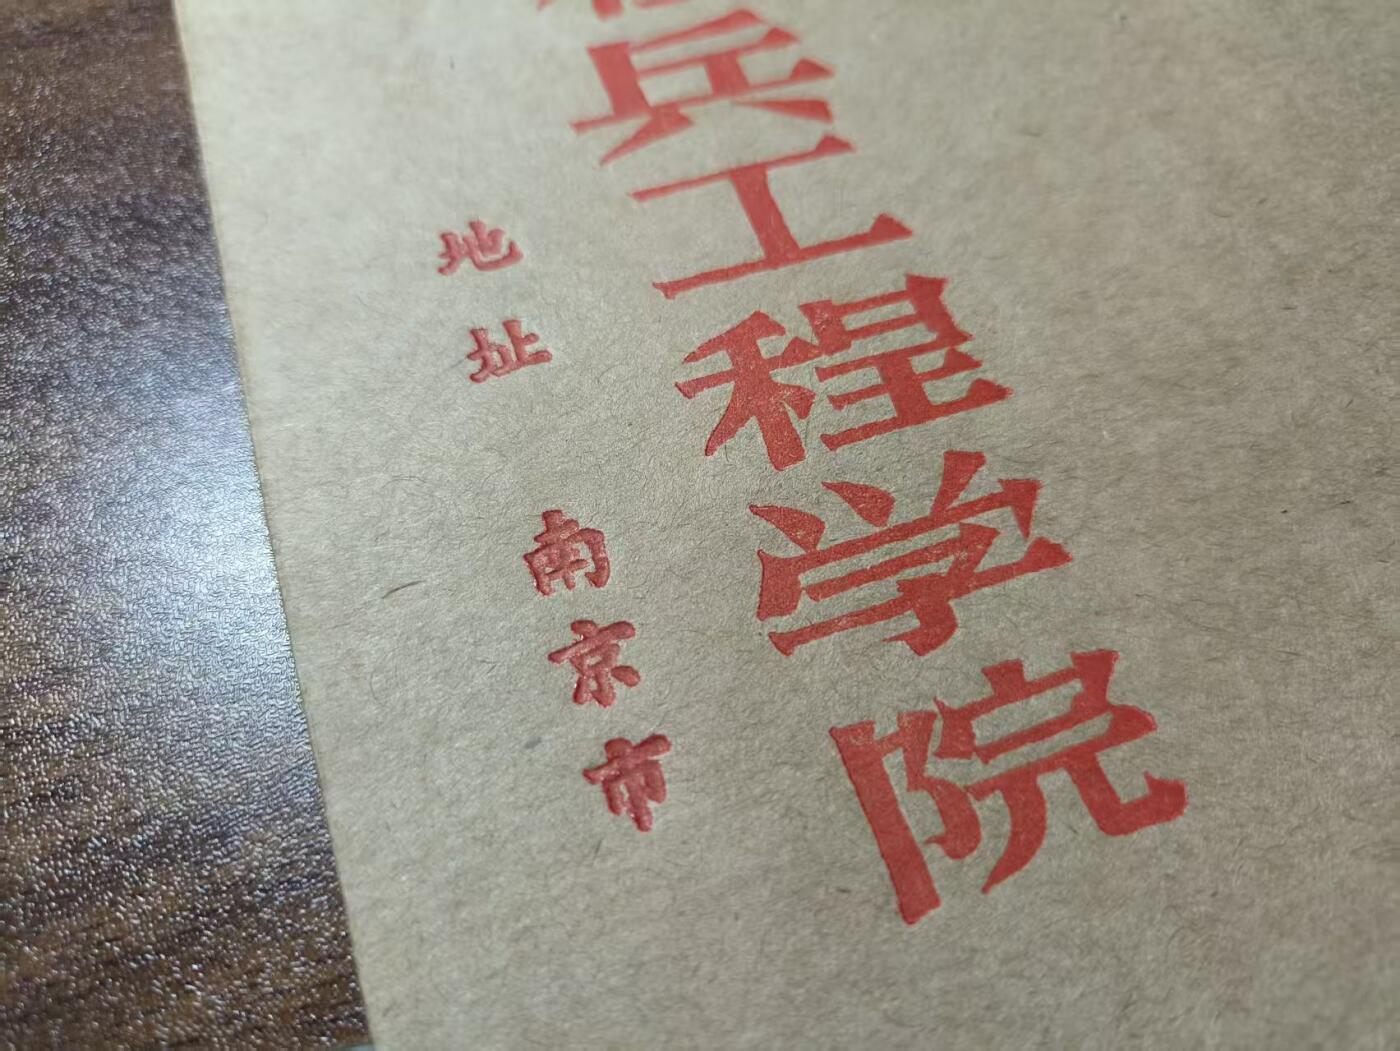 兵工程学院
地址 南京市